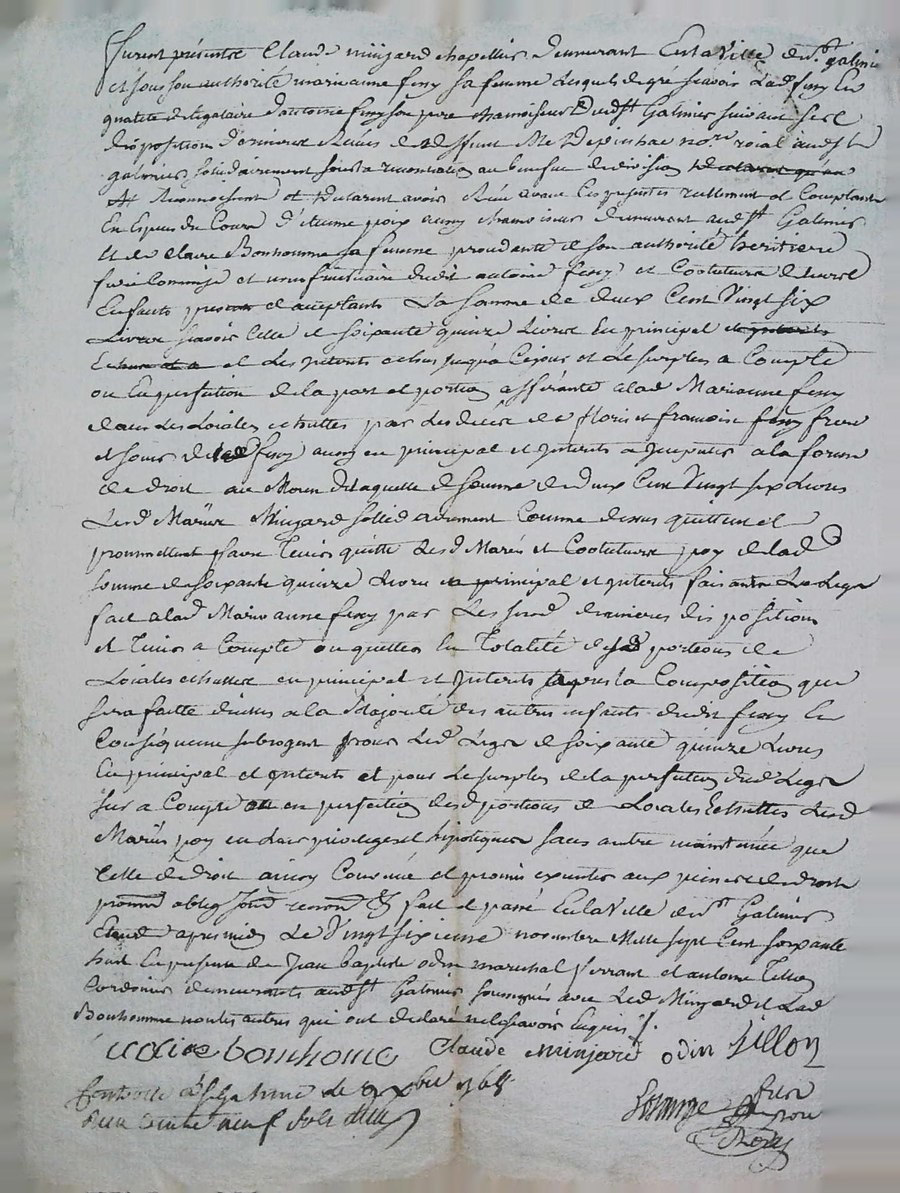 furent présents Claude minjard chapellier demeurant En la Ville de st galmie
et sous son authorité marianne fessy sa femme lesquels de gré scavoir lad fessy En
qualité de légataire d'antoine fessy son pere chamoiseur dudt st Galmier suivant ses
dispositions dernieres Recues de deffunt Me Depinhac nore roial audt st
galmier solidairement sous la renonciation au benefice de division
Reconnoissent et declarent avoir Reçu avant ces presentes reellement et Comptant
En Especes du Cours d'étienne poix aussy chamoiseur demeurant audt st Galmier
et de Claire Bonhomme sa femme procedante de son authorité heritiere
fidei Commise et usufruitiere dudit antoine fessy et Cotuteurs de leurs
Enfants et acceptants La somme de deux Cent Vingt six
Livres scavoir Celle de soixante quinze Livres En principal
et Les interets echus jusqu'a Ce jour et Le surplus a Compte
ou En perfection de la part et portion afférante a lad Marianne fessy
dans Les Loiales echuttes par Les décès de fleurie et francoise fessy frere
et sœur de lad fessy aussy en principal et interets a imputer a la forme
de droit au Moien de laquelle de somme de deux Cent Vingt six Livres
Lesd Mariés Minjard sollidairement Comme dessus quittent et
prommettent faire tenir quitte Lesd Mariés et Cotuteurs poy de lad
somme de soixante quinze Livres en principal et interets faisant Le Legs
fait a lad Marianne fessy par Les susd dernieres dispositions
et tenir a Compte ou quittes En Totalité desd portions de
Loiales echuttes en principal et interets apres la Composition que
sera faitte d'icelles a la Majorité des autres enfants dudit fessy En
Conséquence subrogent pour Led Legs de soixante quinze Livres
En principal et interets et pour Le surplus de la perfection dud Legs
sur a Compte ou en perfection desd portions de Loiales Echuttes Lesd
Mariés poy en Leur privileges et hipoteques sans autre maintenüe que
Celle de droit ainsy Convenu et promis executer aux peines de droit
promm oblig soum renon & fait et passé En la Ville de st Galmier
apres midy Le Vingt sixieme novembre Mille sept Cent soixante
huit En presence de Jean baptiste odin marechal ferrant et antoine Tillon
Cordonier demeurants audt st Galmier soussignés avec Led Minjard et Lad
Bonhomme non les autres qui ont declaré ne le scavoir Enquis
claire bonhome Claude minjard odin tillon
Controllé a st galmier le 9 xbre 1768
Reçu trente neuf sols